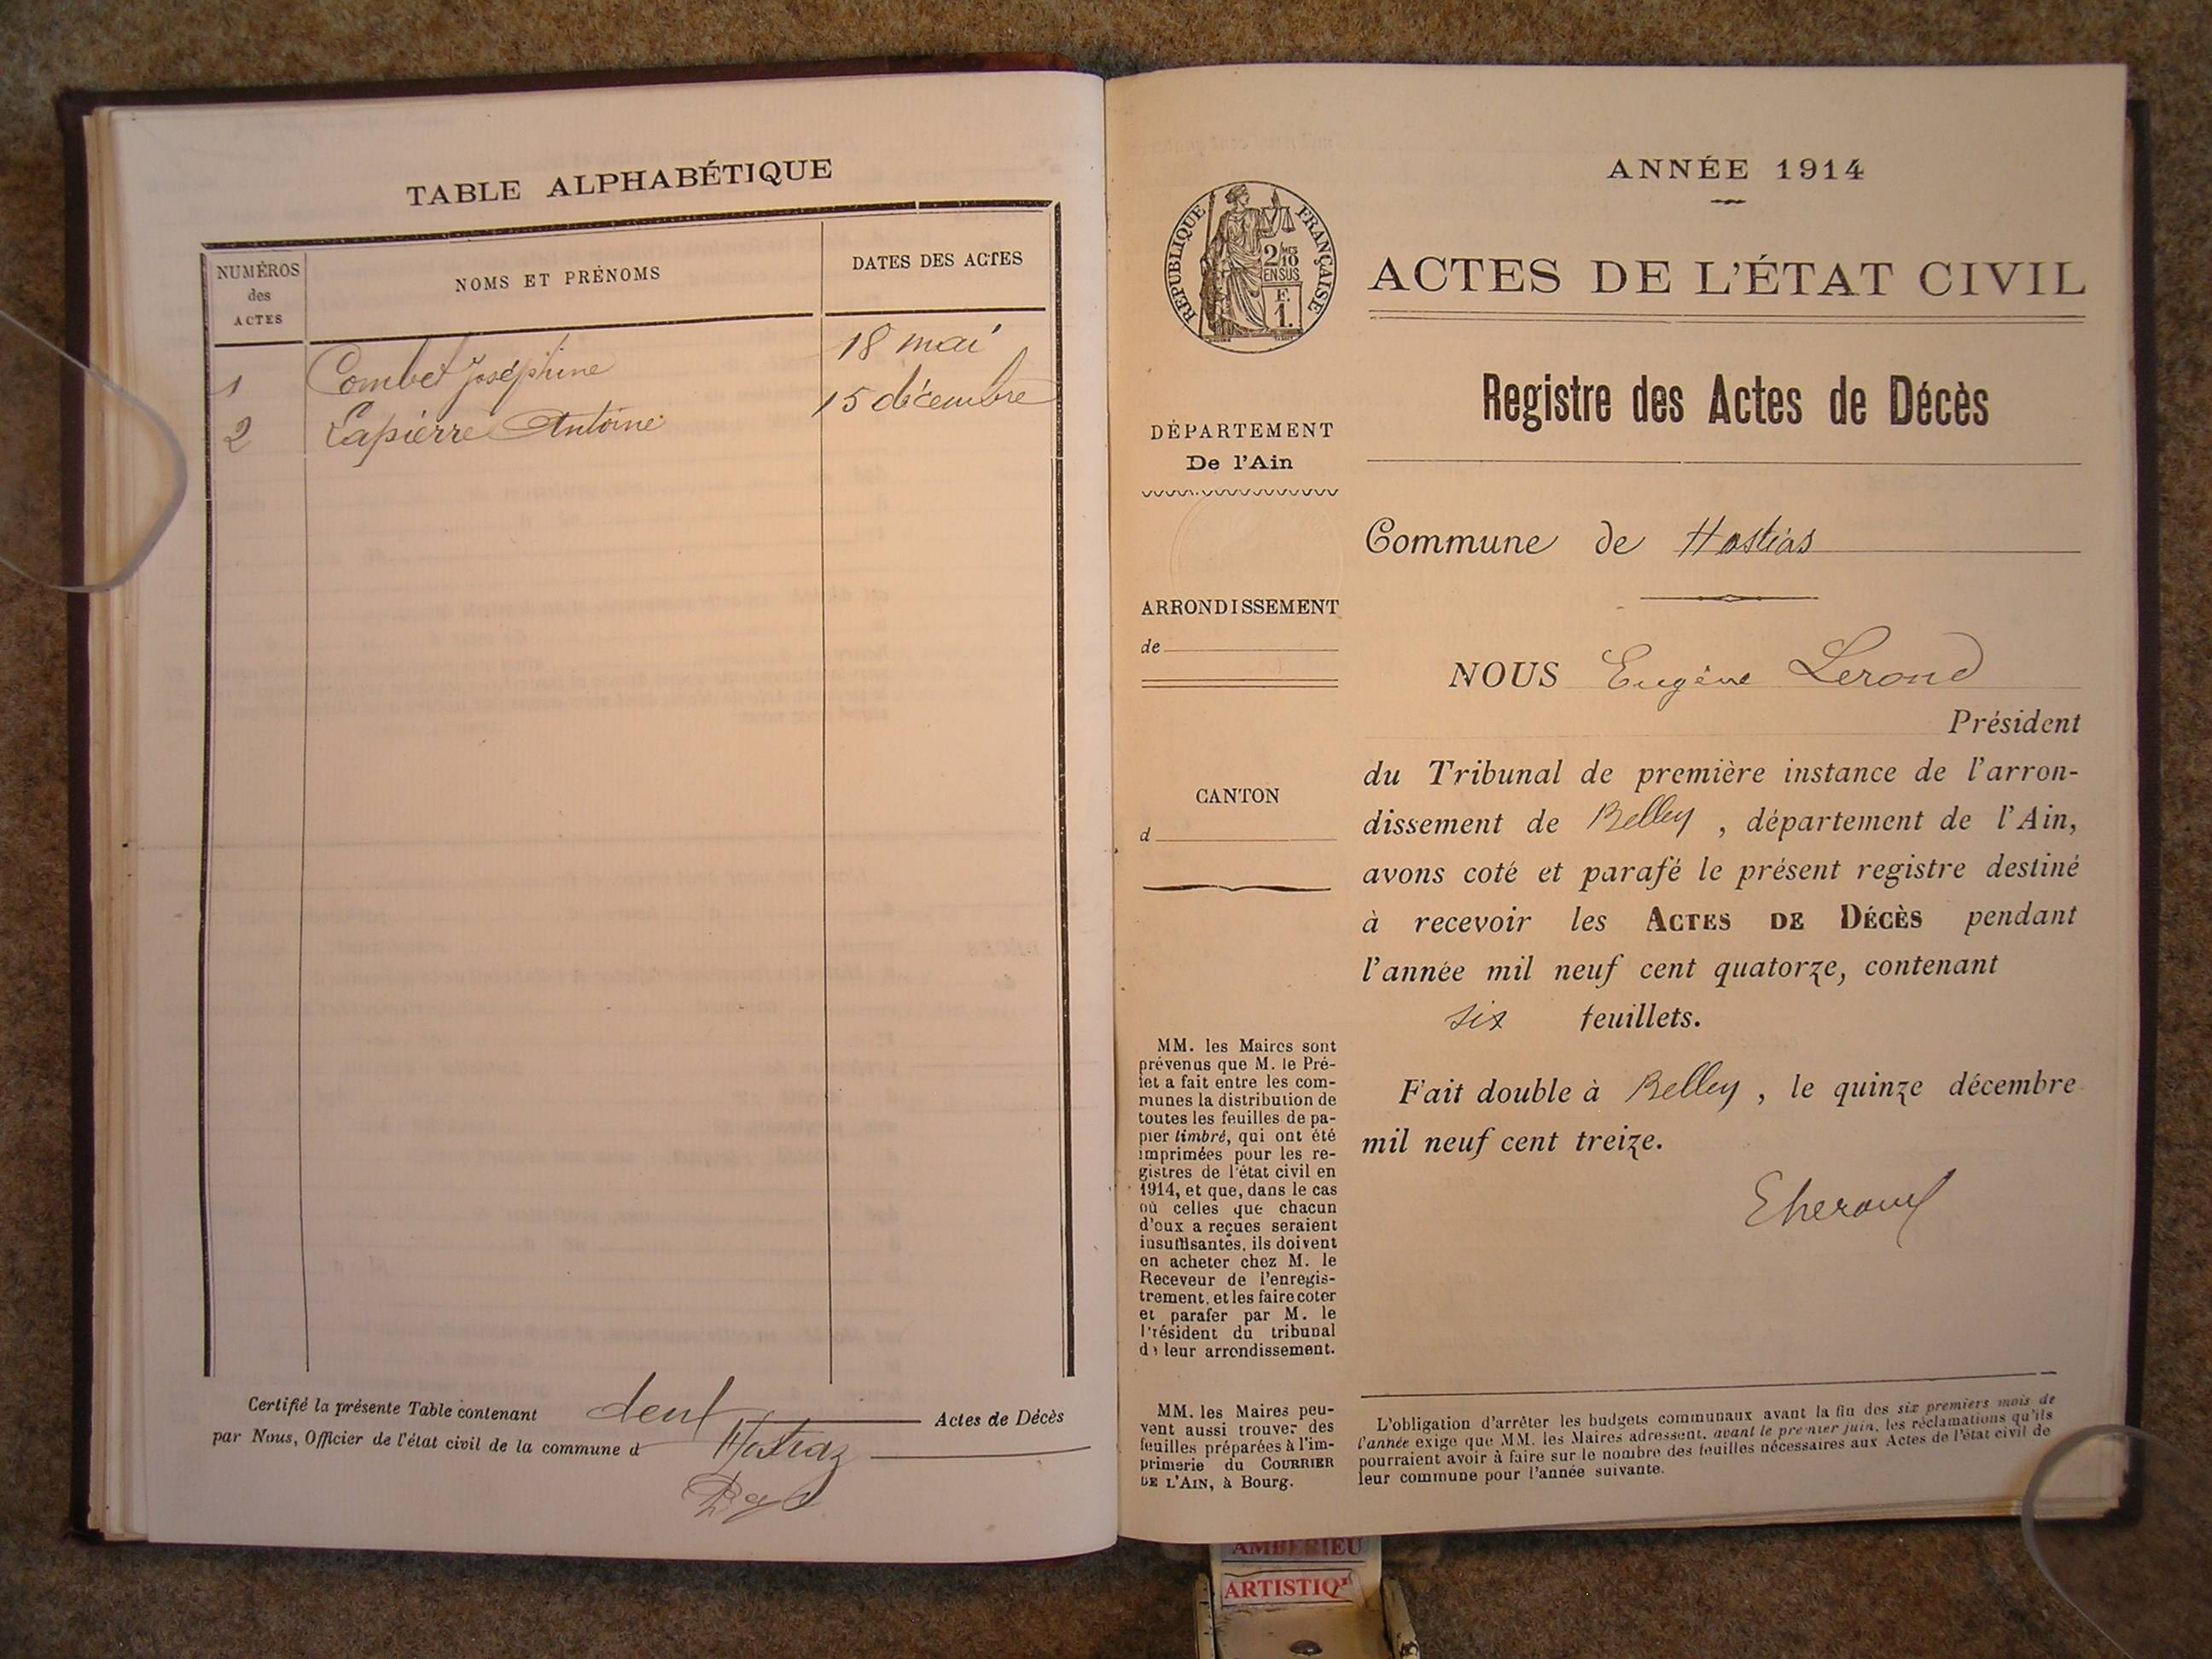 TABLE ALPHABÉTIQUE
NUMÉROS
des
ACTES
NOMS ET PRÉNOMS
DATES DES ACTES
1 Combet Joséphine 18 mai
2 Lapierre Antoine 15 décembre
Certifié la présente Table contenant deux Actes de Décès
par Nous, Officier de l'état civil de la commune d Hostiaz
RÉPUBLIQUE FRANÇAISE
2/10
EN SUS
F.
1.
DÉPARTEMENT
De l'Ain
ARRONDISSEMENT
de
CANTON
d
MM. les Maires sont
prévenus que M. le Pré-
fet a fait entre les com-
munes la distribution de
toutes les feuilles de pa-
pier timbré, qui ont été
imprimées pour les re-
gistres de l'état civil en
1914, et que, dans le cas
où celles que chacun
d'eux a reçues seraient
insuffisantes, ils doivent
en acheter chez M. le
Receveur de l'enregis-
trement, et les faire coter
et parafer par M. le
Président du tribunal
de leur arrondissement.
MM. les Maires peu-
vent aussi trouver des
feuilles préparées à l'im-
primerie du COURRIER
DE L'AIN, à Bourg.
ANNÉE 1914
ACTES DE L'ÉTAT CIVIL
Registre des Actes de Décès
Commune de Hostias
NOUS Eugène Lerond
Président
du Tribunal de première instance de l'arron-
dissement de Belley, département de l'Ain,
avons coté et parafé le présent registre destiné
à recevoir les ACTES DE DÉCÈS pendant
l'année mil neuf cent quatorze, contenant
six feuillets.
Fait double à Belley, le quinze décembre
mil neuf cent treize.
L'obligation d'arrêter les budgets communaux avant la fin des six premiers mois de
l'année exige que MM. les Maires adressent, avant le premier juin, les réclamations qu'ils
pourraient avoir à faire sur le nombre des feuilles nécessaires aux Actes de l'état civil de
leur commune pour l'année suivante.
AMBERIEU
ARTISTIQ